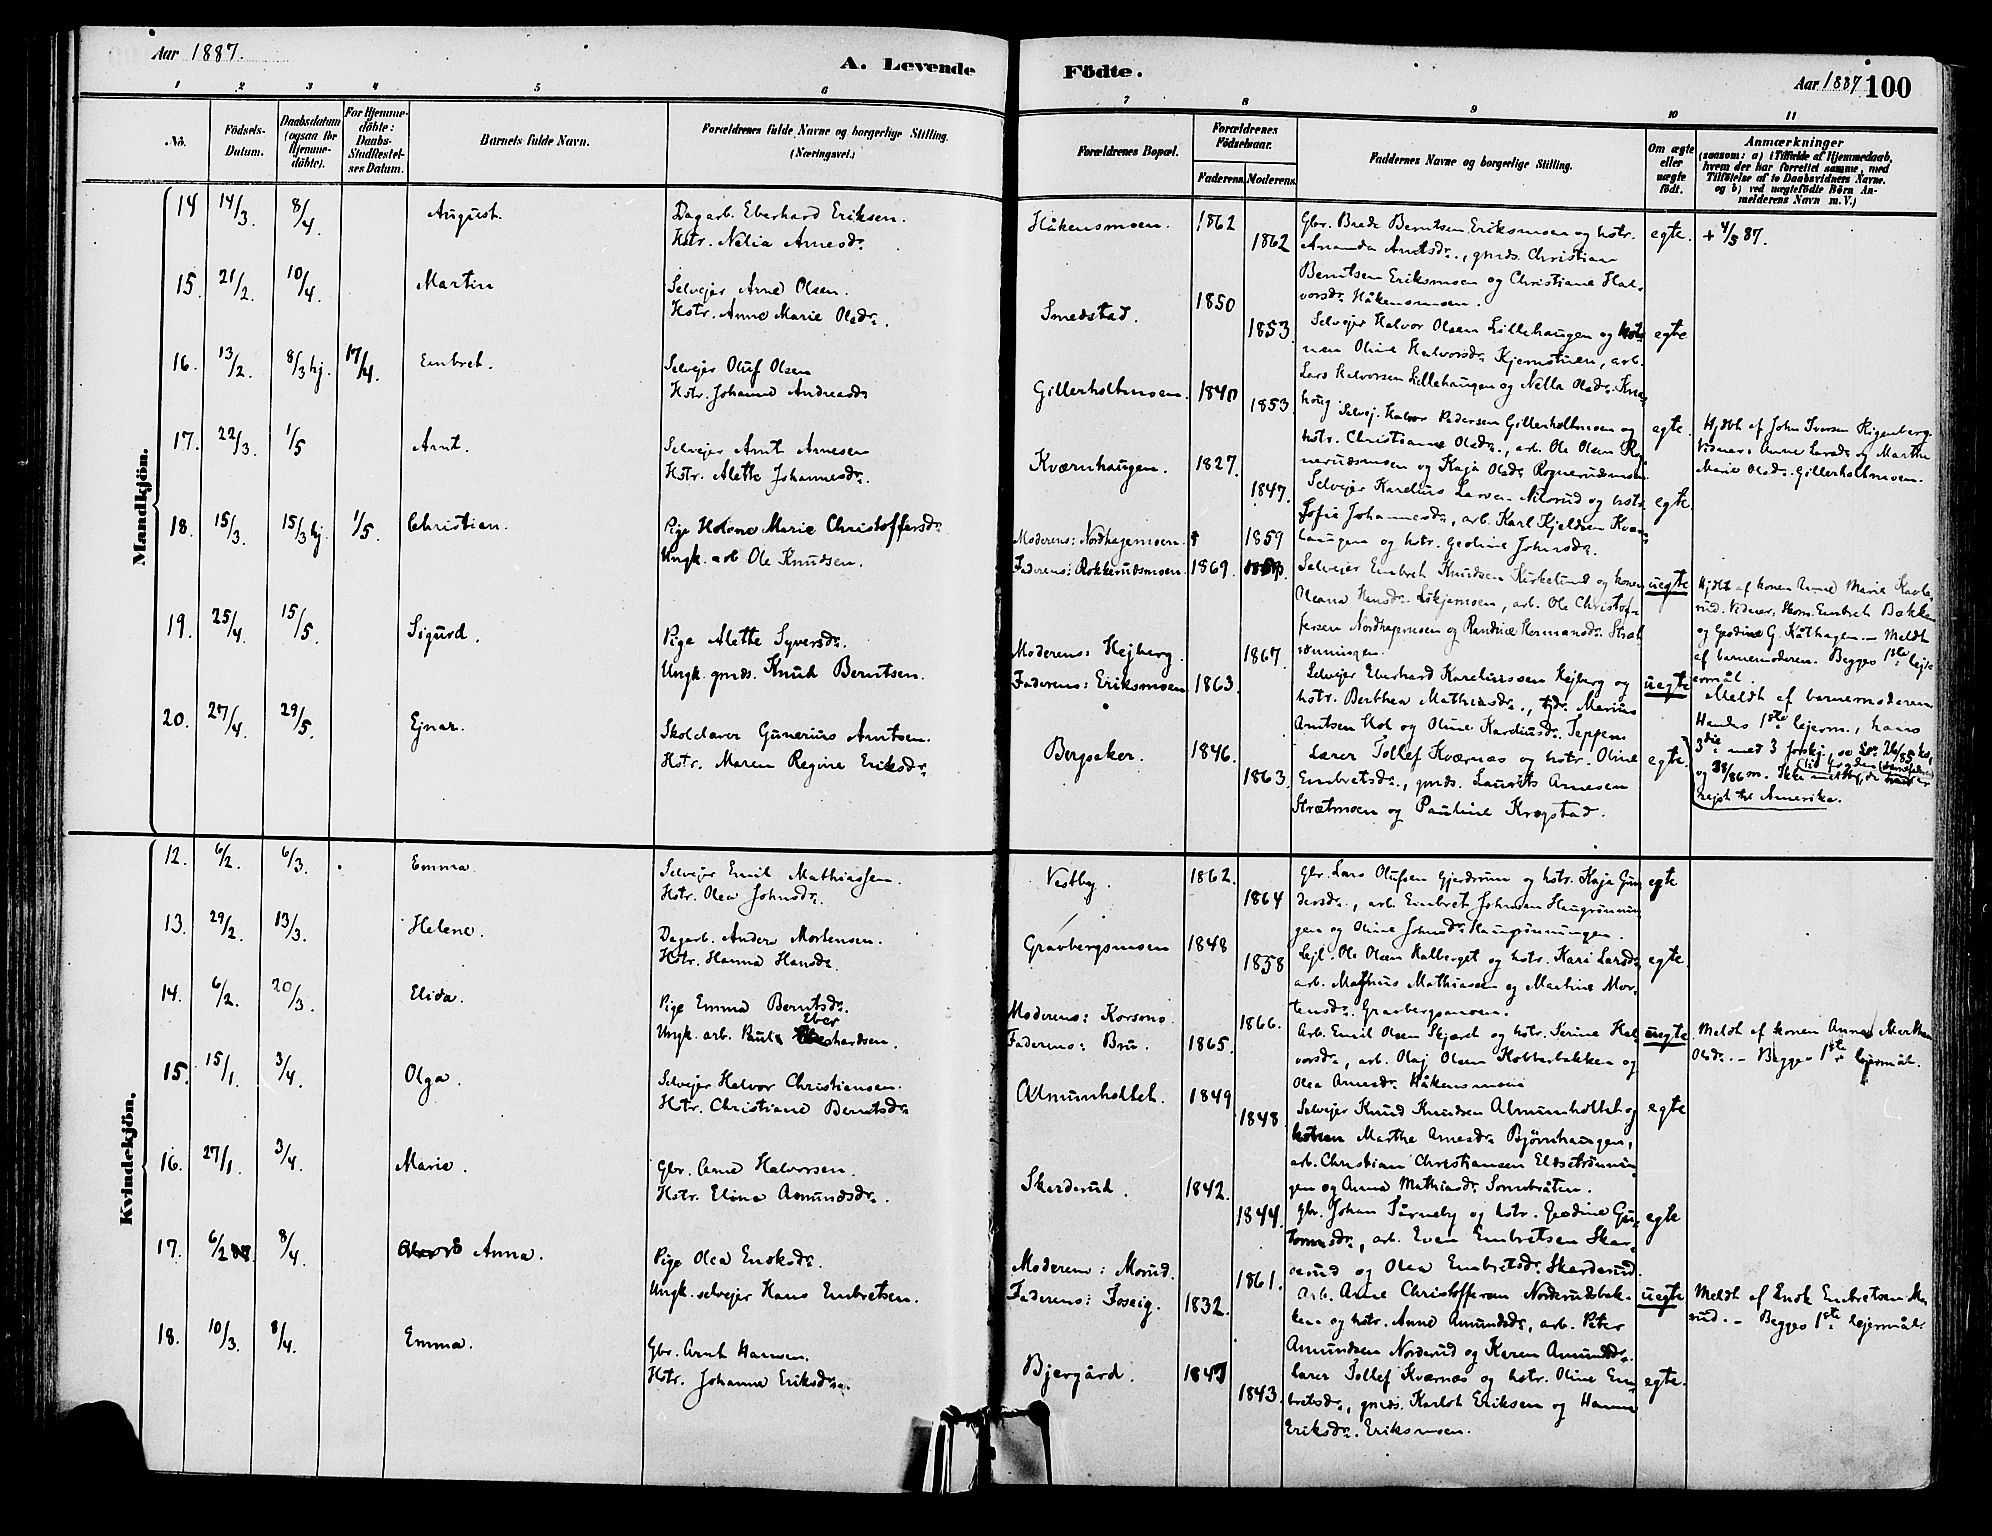 Aar 1887.
A. Levende Födte.
Aar 1887 100
1 2 3 4 5 6 7 8 9 10 11
No.
Födsels-Datum.
Daabsdatum (ogsaa for Hjemmedöbte).
For Hjemmedöbte: Daabs-Stadfæstelses Datum.
Barnets fulde Navn.
Forældrenes fulde Navne og borgerlige Stilling. (Næringsvei.)
Forældrenes Bopæl.
Forældrenes Födselsaar.
Faderens. Moderens.
Faddernes Navne og borgerlige Stilling.
Om ægte eller uægte födt.
Anmærkninger
(saasom: a) i Tilfælde af Hjemmedaab, hvem der har forrettet samme, med Tilföielse af to Daabsvidners Navne, og b) ved uægtefödte Börn Anmelderens Navn m. V.)
Mandkjön.
14 14/3. 8/4. August.
Dagarb. Eberhard Eriksen.
Hstr. Nelia Arnesdr.
Håkensmoen. 1862 1862
Gbr. Brede Berntsen Eriksmoen og hstr.
Amanda Arntsdr., gmds. Christian
Berntsen Eriksmoen og Christiane Hal-
vorsdr. Håkensmoen.
egte. + 4/5 87.
15. 21/2. 10/4. Martin
Selvejer Arne Olsen.
Hstr. Anne Marie Olsdr.
Smedstad. 1850 1853.
Selvejer Halvor Olsen Lillehaugen og hstr
nen Oline Halvorsdr. Kjernstuen, arb.
Lars Halvorsen Lillehaugen og Nella Olsdr.
egte
16. 13/2. 8/3 hj. 17/4. Embret.
Selvejer Oluf Olsen
Hstr. Johanne Andreasdr
Gillerholtmoen. 1840 1853.
Selvej. Halvor Pedersen Gillerholtmoen og
hstr. Christianne Olsdr., arb. Ole Olsen Rog-
nerudsmoen og Kaja Olsdr. Rognerudsmoen
egte.
Hjdbt af John Iversen Higenberg.
Vidner: Anne Larsdr og Marthe
Marie Olsdr. Gillerholtmoen.
17. 22/3. 1/5 Arnt.
Selvejer Arnt Arnesen
Hstr. Alette Johannesdr.
Kværnhaugen. 1827. 1847.
Selvejer Karelius Larsen Nilsrud og hstr.
Sofie Johannesdr., arb. Karl Kjeldsen Kvæn-
haugen og hstr. Gedine Johnsdr.
egte.
18. 15/3. 15/3 hj. 1/5. Christian.
Pige Helene Marie Christoffersdr.
Ungk. arb Ole Knudsen.
Moderens: Nordhagemoen. 1859
Faderens: Rokkerudsmoen. 1869.
Selvejer Embret Knudsen Kirkelund og konen
Oleana Hansdr. Løkjemoen, arb. Ole Christof-
fersen Nordhagemoen og Randine Hermansdr.
rønningen.
uegte
Hjdbt af konen Anne Marie
rud. Vidner: Skom. Embret Bakken
og Gedine G. Kåthagen. — Meldt
af barnemoderen. Begges 1ste lejer-
mål.
19. 25/4. 15/5. Sigurd.
Pige Alette Syversdr.
Ungk. gmds. Knut Berntsen.
Moderens: Hejberg. 1867.
Faderens: Eriksmoen 1863.
Selvejer Eberhard Kareliussen Hejberg og
hstr. Berthea Mathisdr., tjdr. Marius
Arntsen Hol og Oline Kardiusdr. Teppen
uegte
Meldt af barnemoderen
Hendes 1ste lejerm., hans
3die med 3 forskj., se No 26/85 kv.
og 38/86 m.
rejst til Amerika.
20. 27/4. 29/5. Ejnar.
Skolelærer Gunerius Arntsen.
Hstr. Maren Regine Eriksdr.
Bergseker. 1846. 1863.
Lærer Tollef Kværnæs og hstr. Oline
Embretsdr., gmds. Laurits Arnesen
Strætmoen og Pauline Krogstad.
egte.
Kvindekjön.
12. 6/2. 6/3. Emma.
Selvejer Emil Mathiassen.
Hstr. Olea Johnsdr.
Vestby. 1862. 1864
Gbr. Lars Olufsen Gjerdrum og hstr. Kaja Gun-
dersdr., arb Embret Johnsen Haugrønnin-
gen og Oline Johnsdr. Haugrønningen.
egte
13. 29/2. 13/3. Helene.
Dagarb. Anders Mortensen.
Hstr. Hanna Hansdr.
Gravbergsmoen 1848 1858
Lejl. Ole Olsen Kalberget og hstr. Kari Larsdr.
arb. Mathias Mathiasen og Martine Mor-
tensdr. Gravbergsmoen.
egte.
14. 6/2. 20/3. Elida.
Pige Emma Berntsdr.
Ungk. arb. Paul Eberhardsen.
Moderens: Korsmo 1866.
Faderens: Bru. 1865.
Arb. Emil Olsen Skjæret og hstr. Serine Hal-
vorsdr., arb. Olaj Olsen Holtterbakken og
Olea Arnesdr. Håkensmoen
uegte
Meldt af konen Anne Marthea
Olsdr. — Begges 1ste lejermål.
15. 15/1. 3/4. Olga.
Selvejer Halvor Christiansen.
Hstr. Christiane Berntsdr.
Almunholtet. 1849 1848.
Selvejer Knud Knudsen Almunholtet og
konen Marthe Arnesdr. Bjørnhaugen,
arb. Christian Christiansen Eldsetrønnin-
gen og Anna Mathiasdr. Sonebråten.
egte
16. 27/1. 3/4. Marie.
Gbr. Arne Halvorsen.
Hstr. Eline Amundsdr.
Skarderud. 1842. 1844.
Gbr. Johan Tårneby og hstr. Gedine Gu-
tormsdr., arb. Even Embretsen Skar-
derud og Olea Embretsdr. Skarderud.
egte
17. 6/2. 8/4. Anna.
Pige Olea Enoksdr.
Ungk. selvejer Hans Embretsen.
Moderens: Morud. 1861.
Faderens: Fosseig. 1832.
Arb. Arne Christoffersen Norderudsbak-
ken og hstr. Anne Amundsdr, arb. Peter
Amundsen Norderud og Karen Amundsdr.
uegte
Meldt af Enok Embretsen Mo-
rud. — Begges 1ste lejermål.
18. 10/3. 8/4. Emma.
Gbr. Arnt Hansen.
Hstr. Johanne Eriksdr.
Bjergård. 1847 1843.
Lærer Tollef Kværnæs og hstr. Oline Em-
bretsdr., gmds. Karloh Eriksen og Hanna
Eriksdr. Eriksmoen.
egte.